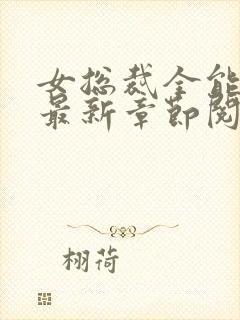 女总裁全能
最新章节阅
栩荷